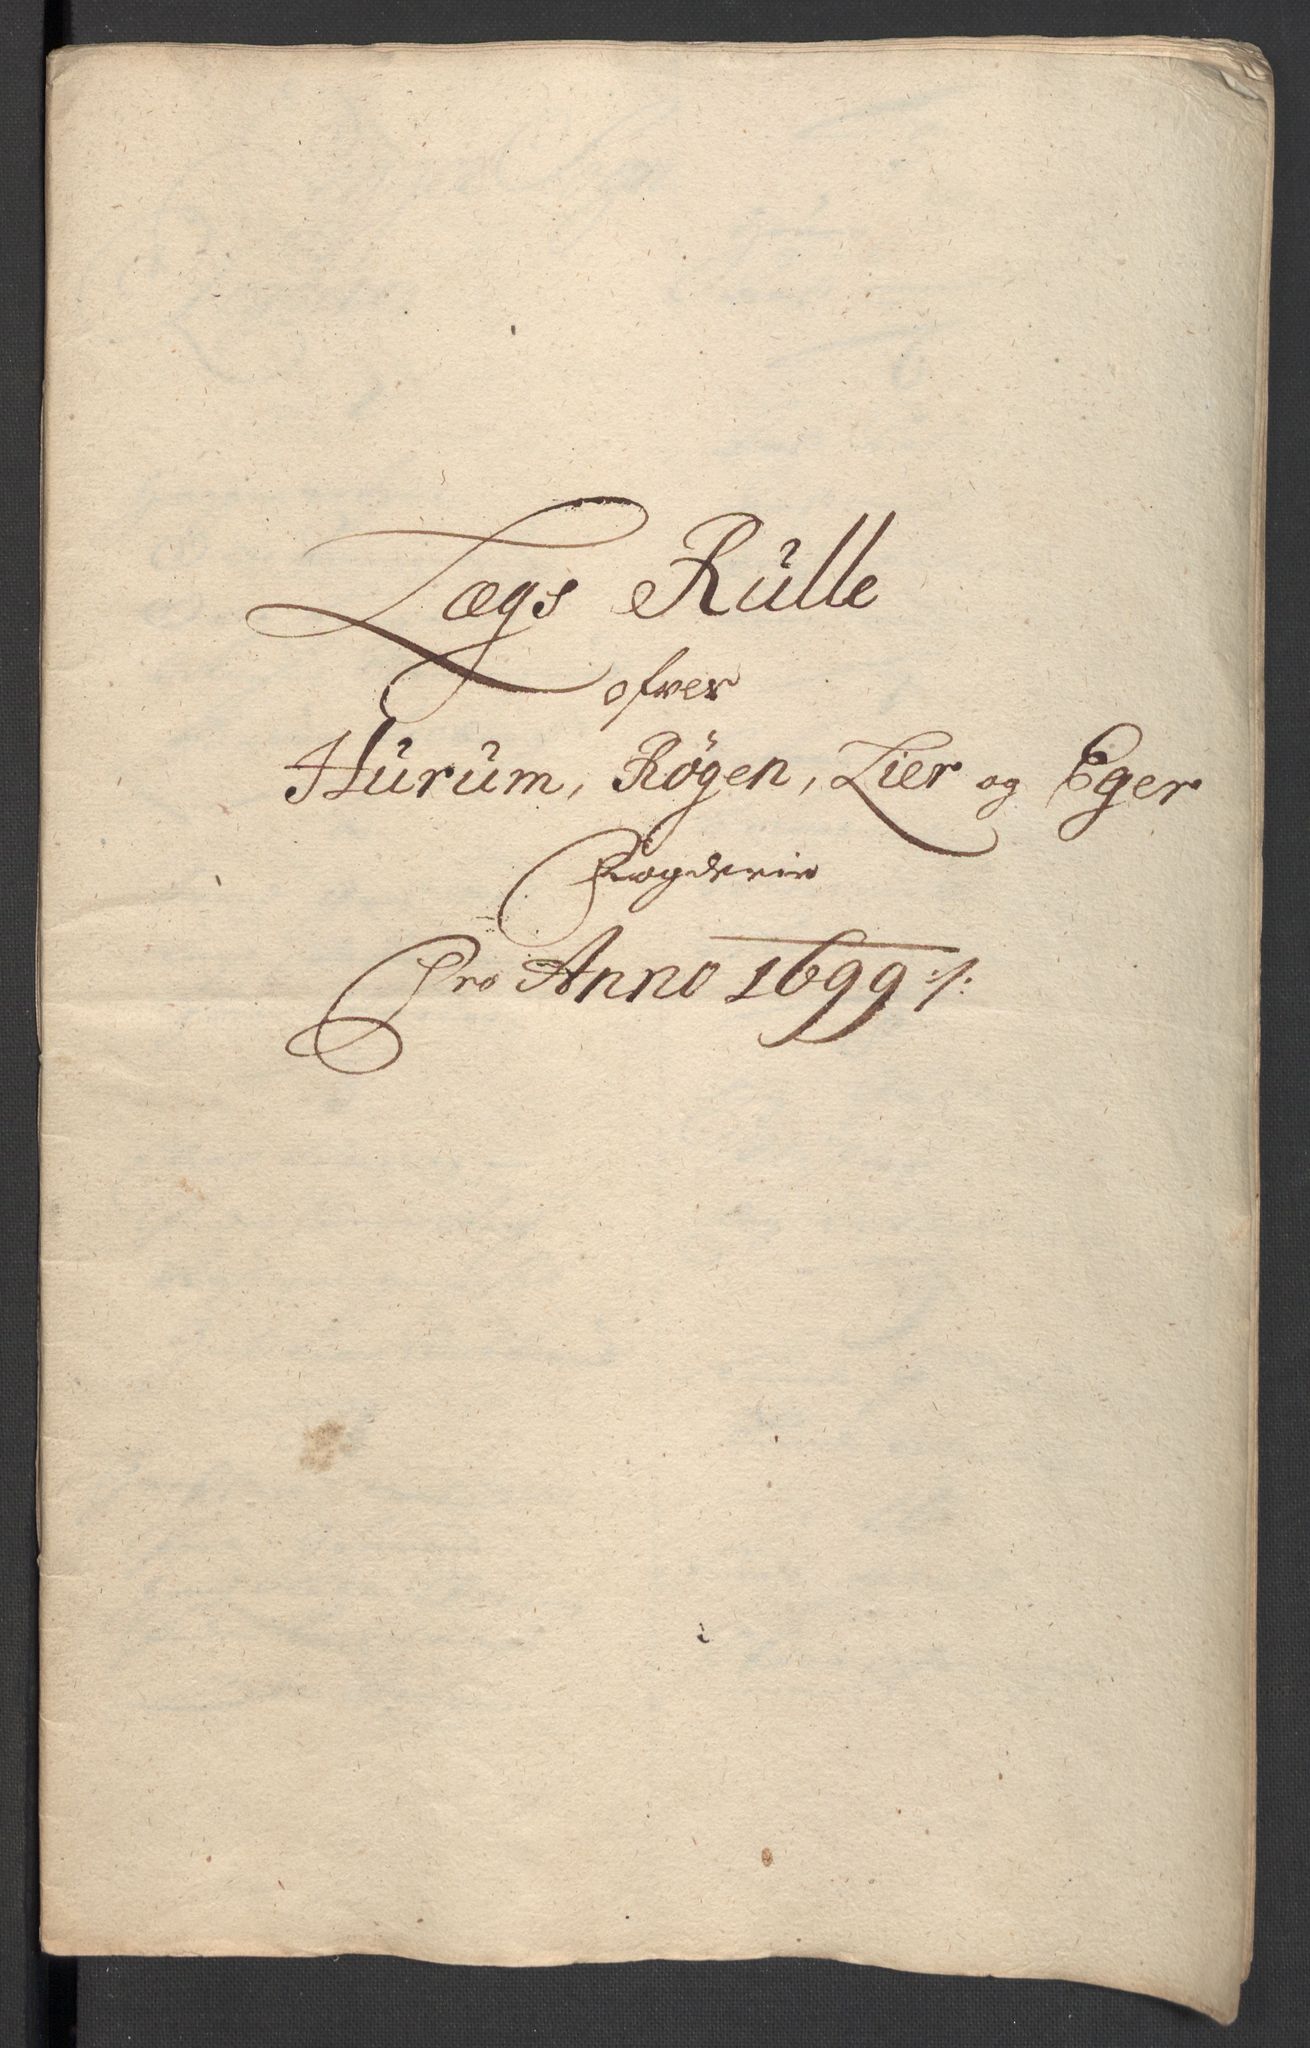 Lægs Rulle
ofver
Hurum, Røgen, Lier og Eger
Fogderie
Pro Anno 1699 ./: